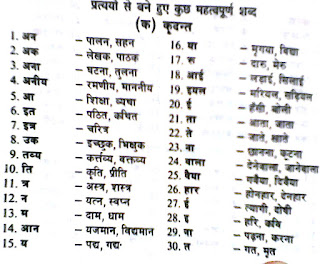 प्रत्ययों से बने हुए कुछ महत्वपूर्ण शब्द
(क) कृदन्त
1. अन - पालन, सहन
2. अक - लेखक, पाठक
3. अना - घटना, तुलना
4. अनीय - रमणीय, माननीय
5. आ - शिक्षा, व्यथा
6. इत - पठित, कथित
7. इत्र - चरित्र
8. उक - इच्छुक, भिक्षुक
9. तव्य - कर्त्तव्य, वक्तव्य
10. ति - कृति, प्रीति
11. त्र - अस्त्र, शस्त्र
12. न - यत्न, स्वप्न
13. म - दाम, धाम
14. आन - यजमान, विद्यमान
15. य - पद्य, गद्य
16. या - मृगया, विद्या
17. रु - दारु, मेरु
18. आई - लड़ाई, सिलाई
19. इयल - मरियल, सड़ियल
20. ई - हँसी, बोली
21. ता - आता, जाता
22. ते - जाते, खाते
23. ना - छानना, कूटना
24. वाला - देनेवाला, जानेवाला
25. वैया - गवैया, दिवैया
26. हार - होनहार, देनहार
27. ई - त्यागी, दोषी
28. इ - हरि, कवि
29. ना - पढ़ना, करना
30. त - गत, मृत